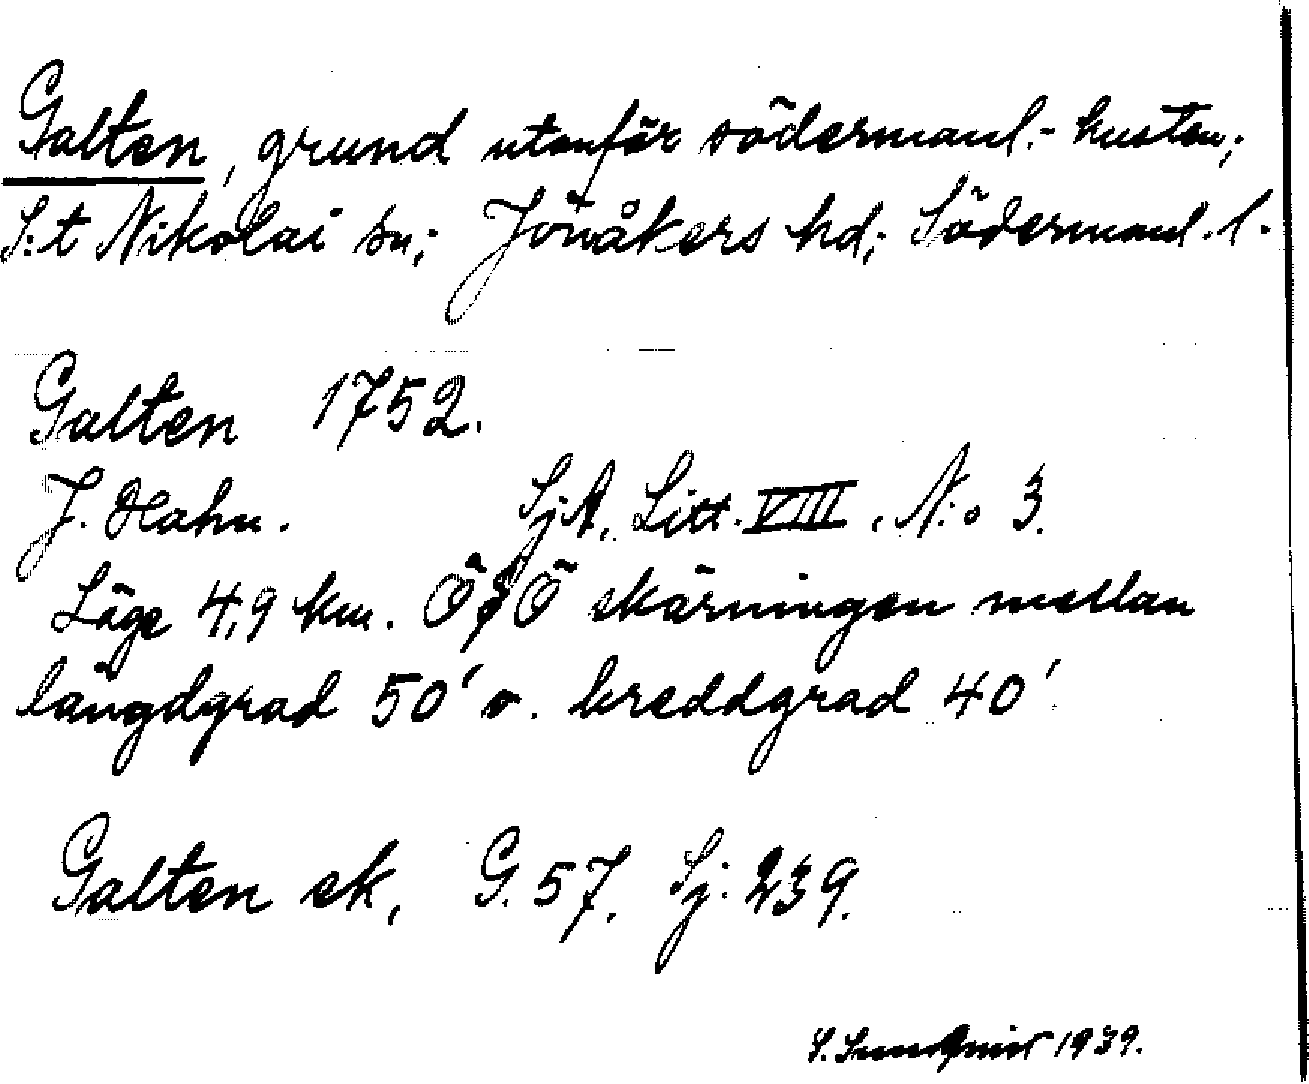 Galten, grund utanför södermanl.- kusten;
S:t Nikolai sn; Jönåkers hd; Södermanl. l.
Galten 1752.
J. Hahn. SjA, Litt. VIII. N:o 3.
Läge 4,9 km. ÖSÖ skärningen mellan
längdgrad 50' o. breddgrad 40'
Galten ek, G. 57, Sj. 239.
S. Sundqvist 1939.